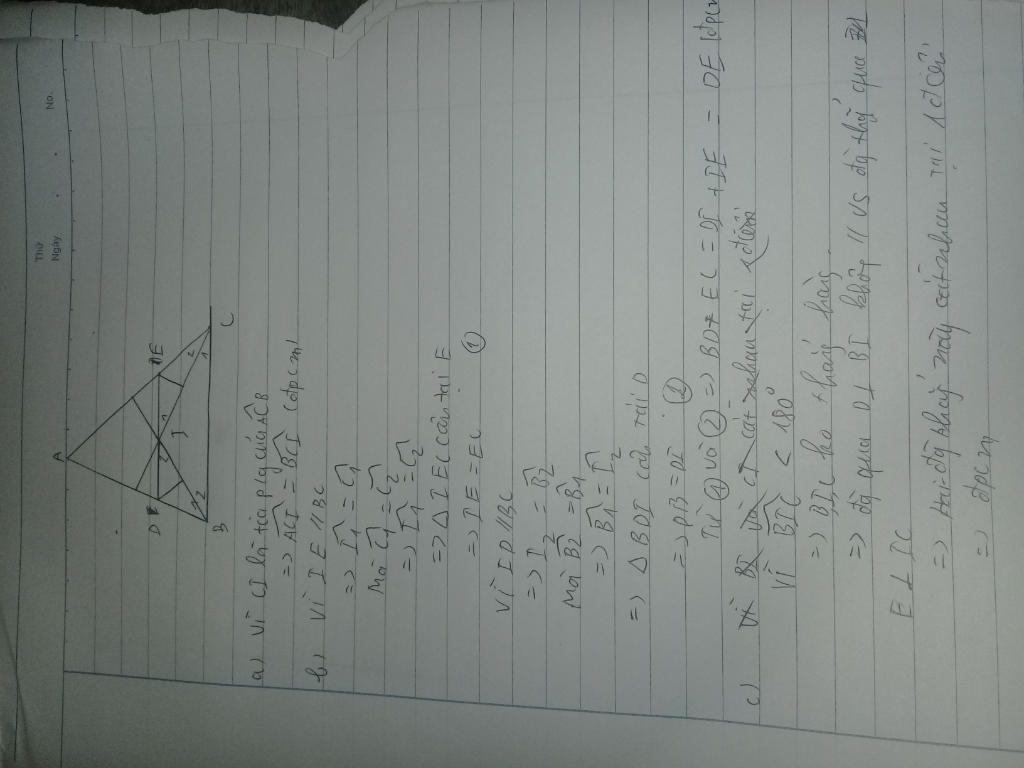 Thứ
Ngày
No.
A
D E
I
B 2
2 1 C
a) Vì CI là tia p/g góc ACB
=> ACI = BCI (đpcm)
b) Vì IE // BC
=> I1 = C1
Mà C1 = C2
=> I1 = C2
=> Δ IEC cân tại E
=> IE = EC ①
Vì ID // BC
=> I2 = B2
Mà B2 = B1
=> B1 = I2
=> Δ BDI cân tại D
=> DB = DI ②
Từ ① và ② => BD + EC = DI + IE = DE (đpcm
c) Vì BI và CI cắt nhau tại 1 điểm
Vì BIC < 180°
=> B, I, C ko thẳng hàng.
=> đg qua D ⊥ BI không // vs đg thg qua
E ⊥ IC
=> Hai đg thẳng này cắt nhau tại 1 điểm
=> đpcm